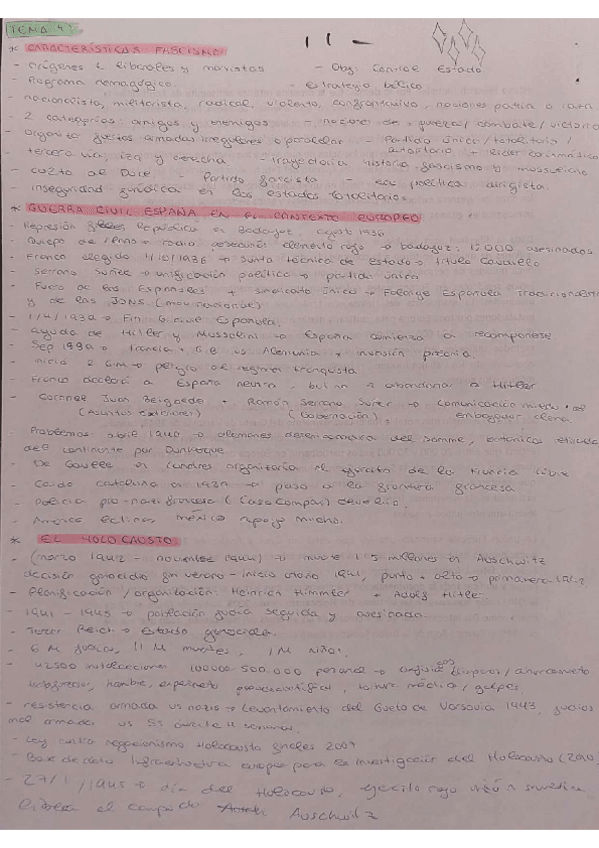 TEMA 4
* CARACTERÍSTICAS FASCISMO:
- Orígenes liberales y marxistas - Obj: Control Estado
- Programa demagógico - estrategia bélica
- nacionalista, militarista, radical, violento,
- 2 categorías: amigos y enemigos guerra/combate/victoria
- Organiza fuerzas armadas irregulares o paralelas - Partido único/totalitario/
autoritario + líder carismático
- tercera vía, izq y derecha - trayectoria historia fascismo y
- culto al Duce - Partido fascista - política dirigista
inseguridad jurídica en los estados totalitarios.
* GUERRA CIVIL ESPAÑA EN EL CONTEXTO EUROPEO
- Represión República en Badajoz, agost 1936
- Queipo de Llano → radio elemento rojo → badajoz: 12000 asesinados
- Franco elegido 1/10/1936 → Junta técnica de estado → título Caudillo
- Serrano Suñer → unificación política → partido único
- Fuero de los Españoles + sindicato único → Falange Española tradicionalista
y de las JONS (mov nacional)
- 1/4/1939 → Fin G. civil Española.
- ayuda de Hitler y Mussolini → España comienza a recomponerse
- Sep 1939 → Francia + G.B vs Alemania + invasión
- inicia 2 GM → peligro al regimen franquista
- Franco declará a España neutra, abandonar a Hitler
- Coronel Juan Beigbeder + Ramón Serrano Suñer → Comunicación
(Asuntos exteriores) (Gobernación) embajador
- Problemas: abril 1940 → alemanes del Somme, británicos
del continente por Dunkerque
- De Gaulle en Londres organizaría el ejército de la Francia libre
- Caída cataluña en 1939 → paso a la frontera francesa
- policía pro-nazi francesa
- America México apoyo mucho.
* EL HOLOCAUSTO:
- (marzo 1942 - noviembre 1944) → muerte 1'5 millones en Auschwitz
decisión genocidio fin verano - inicio otoño 1941, punto + alto → primavera 1942
- Planificación / organización: Heinrich Himmler + Adolf Hitler.
- 1941 - 1945 → población judía seguida y asesinada.
- Tercer Reich → Estado genocida.
- 6 M judíos, 11 M muertes, 1 M niños.
- 42500 instalaciones 100000-500.000 personal →
hambre, pseudocientífica, tortura médica / golpes
- resistencia armada vs nazis → Levantamiento del Gueto de Varsovia 1943, judíos
mal armados vs SS 4 semanas.
- Ley contra negacionismo Holocausto 2007
- Base de datos Infraestructura europea para la investigación del Holocausto (2010)
- 27/1/1945 → día del Holocausto, ejercito rojo unión soviética
libera el campo de Auschwitz